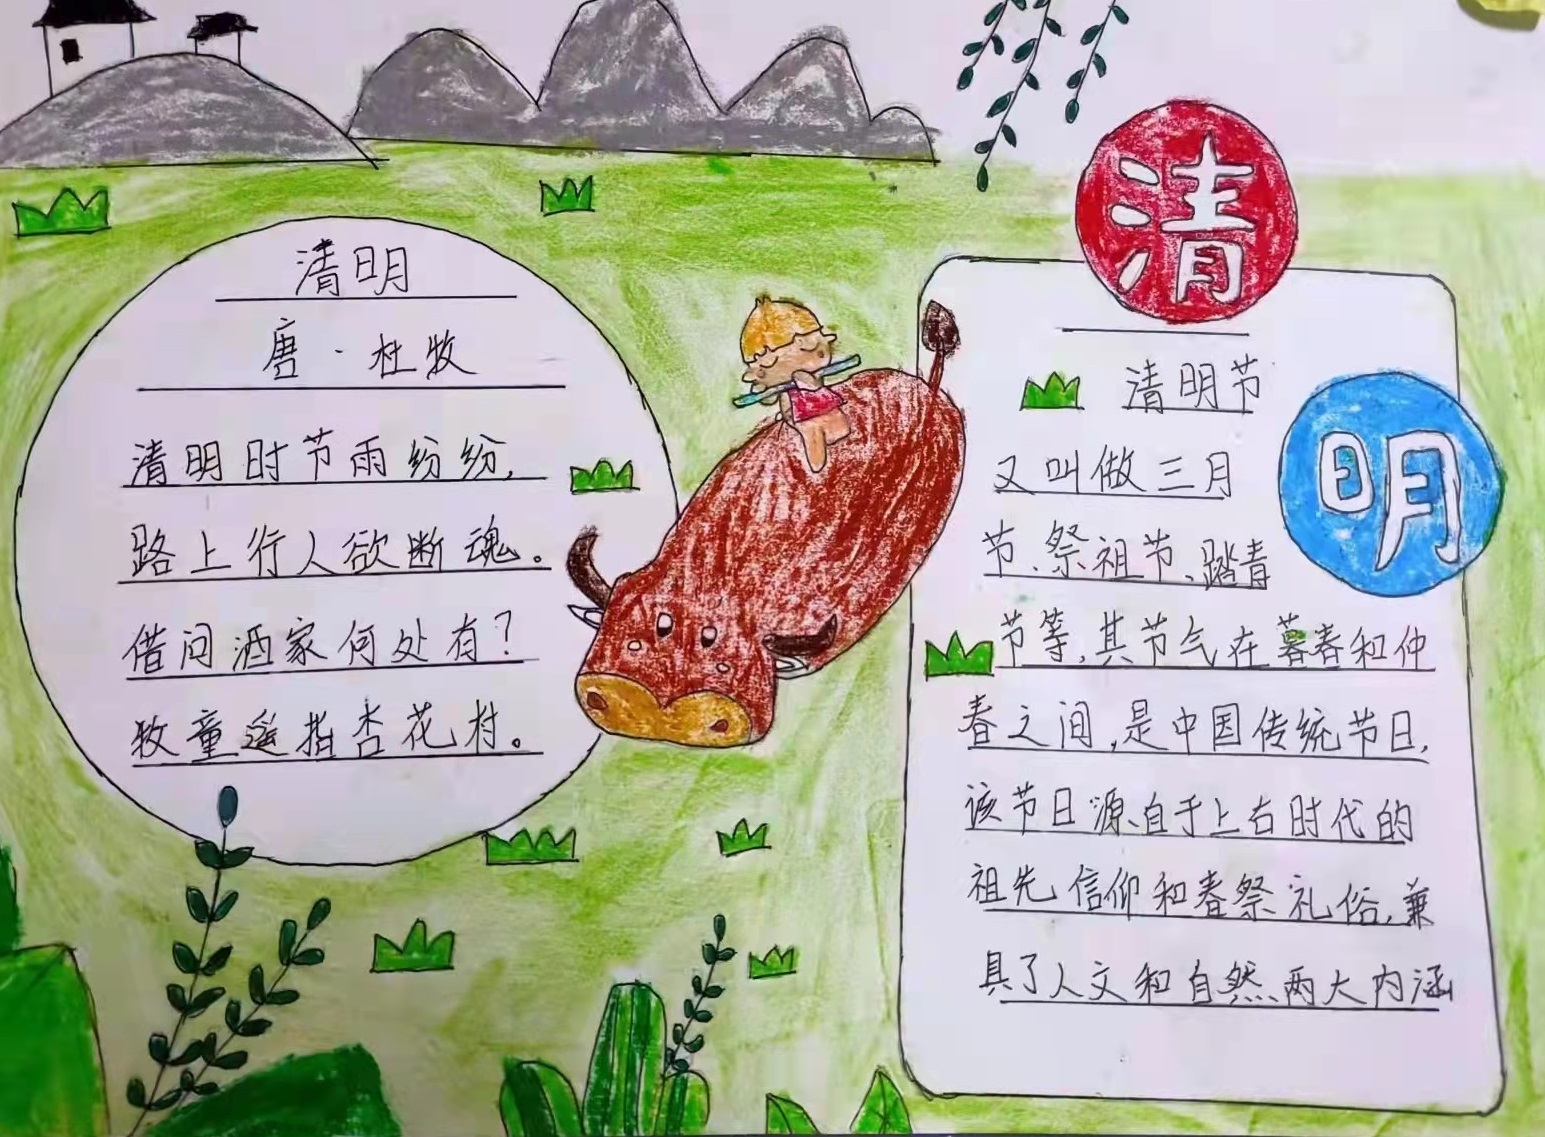 清明
唐·杜牧
清明时节雨纷纷,
路上行人欲断魂。
借问酒家何处有?
牧童遥指杏花村。
清
明
清明节
又叫做三月
节、祭祖节、踏青
节等,其节气在暮春和仲
春之间,是中国传统节日,
该节日源自于上古时代的
祖先信仰和春祭礼俗,兼
具了人文和自然两大内涵